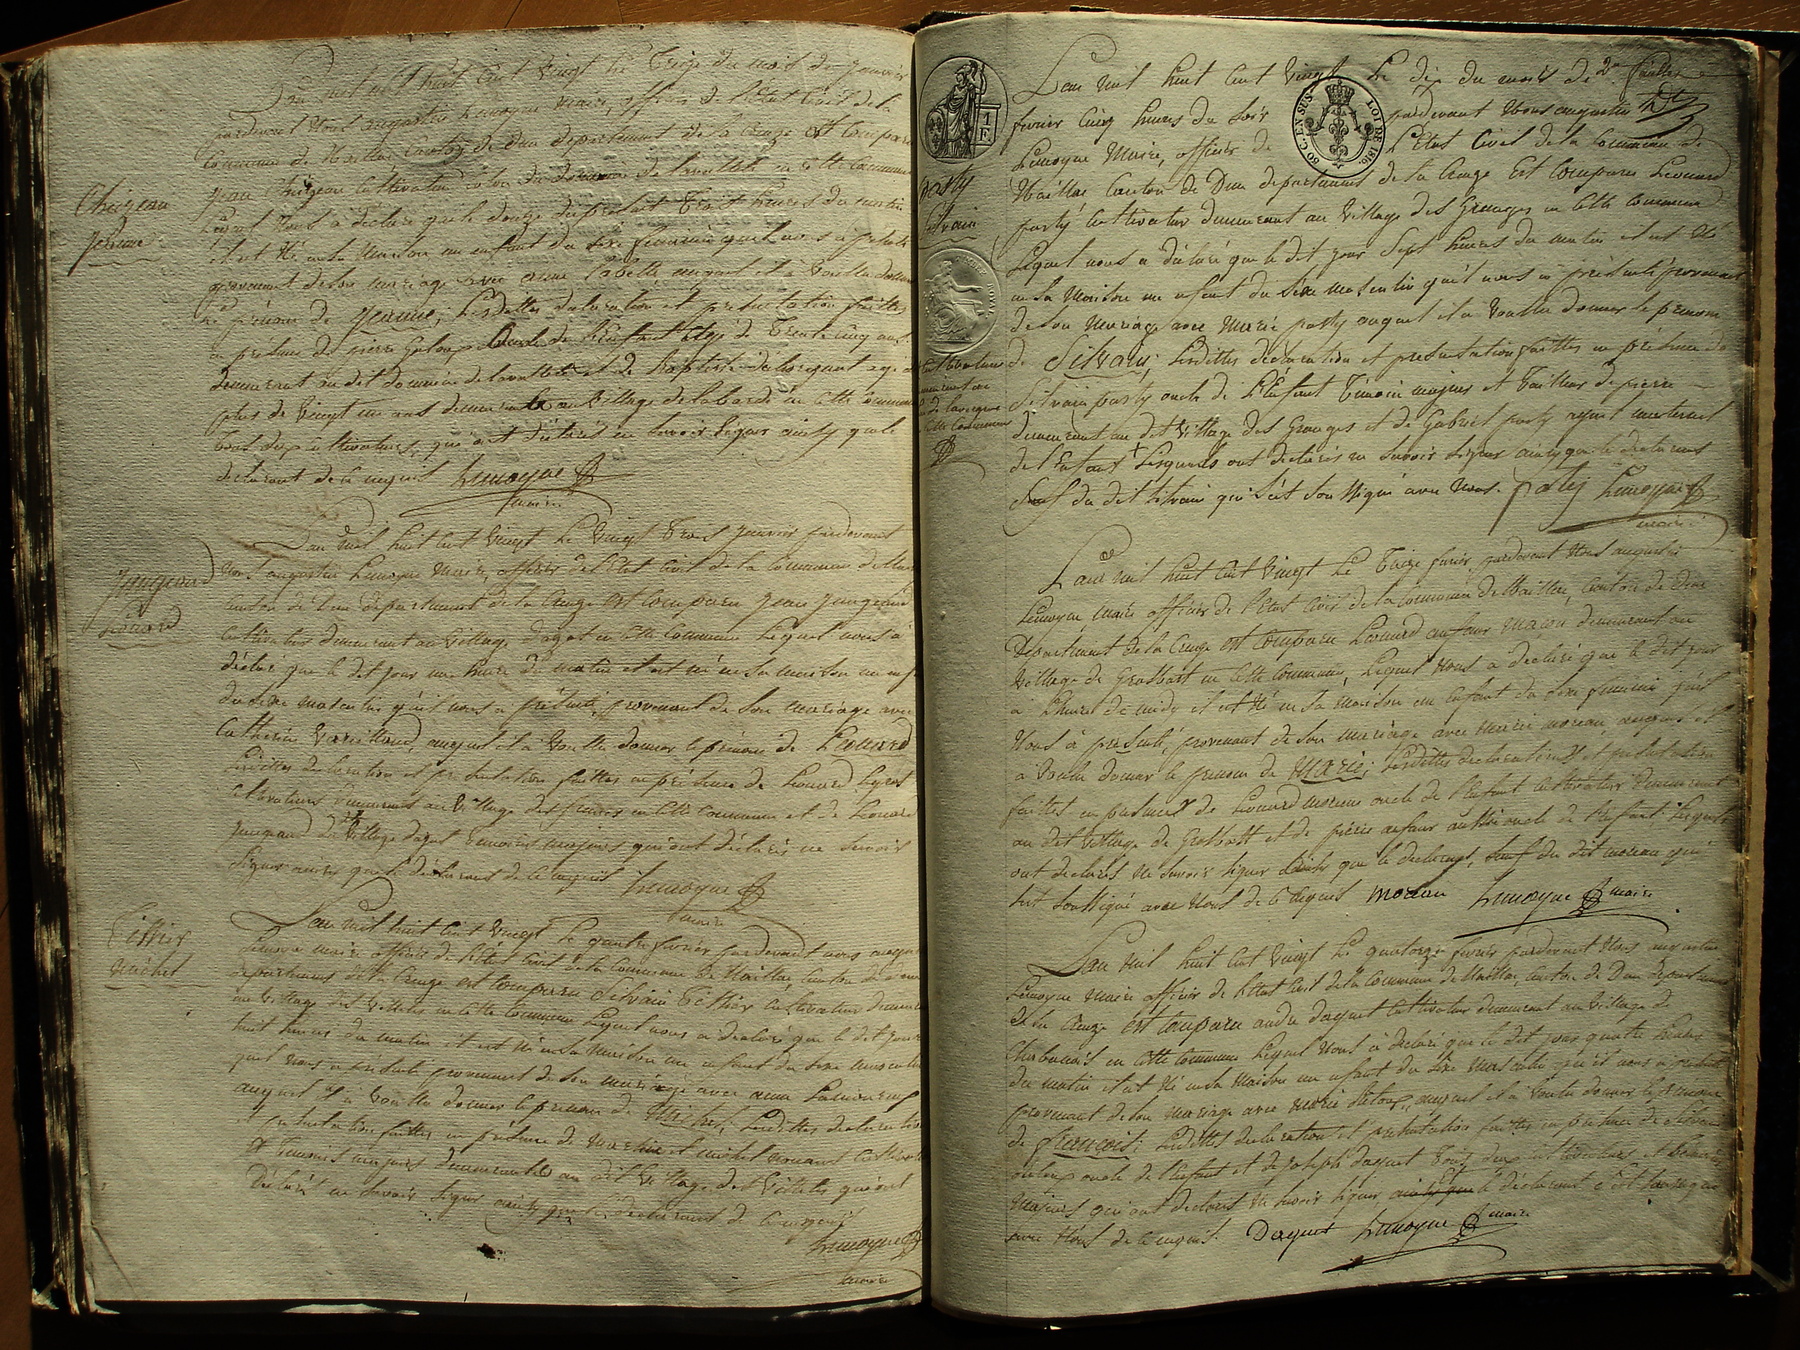 L'an mil huit cent vingt le treize du mois de janvier
pardevant nous augustin Lemoyne maire, officier de l'Etat Civil de la
Commune de Maillac Canton de Dun département de la Creuze est comparu
jean Chézeau Cultivateur colon du domaine de Lavallette en cette commune
Lequel nous a déclaré que le douze du présent huit heures du matin
il est né en sa maison un enfant du sexe féminin que nous a présenté
provenant de son mariage avec anne auquel il a voulu donner
le prénom de jeanne; Lesdittes déclaration et présentation faittes
en présence de pierre oncle de l'Enfant agé de trente cinq ans
demeurant au dit domaine de Lavallette et de Baptiste agé de
plus de vingt un ans demeurant au village de la barde en cette commune
tous deux cultivateurs, qui ont déclaré ne savoir signer ainsy que le
déclarant de ce enquis Lemoyne
maire
Chézeau
jeanne
L'an mil huit cent vingt le vingt trois janvier pardevant
nous augustin Lemoyne maire, officier de l'Etat Civil de la Commune de
canton de Dun département de la Creuze est comparu jean jangeaud
Cultivateur demeurant au village dagot en cette commune Lequel nous a
déclaré que le dit jour une heure du matin il est né en sa maison un
du sexe masculin qu'il nous a présenté, provenant de son mariage avec
Catherine auquel il a voulu donner le prénom de Léonard
Lesdittes déclaration et présentation faittes en présence de Léonard
cultivateurs demeurant au village des en cette commune et de Léonard
du village dagot temoins majeurs qui ont déclaré ne savoir
signer ainsy que le déclarant de ce enquis Lemoyne
maire
Léonard
L'an mil huit cent vingt le quatre fevrier pardevant nous
Lemoyne maire officier de l'Etat Civil de la Commune de Maillac, canton de
département de la Creuze est comparu Silvain Tissier cultivateur
au village des Villettes en cette commune Lequel nous a déclaré que le dit jour
huit heures du matin il est né en sa maison un enfant du sexe masculin
quil nous a présenté provenant de son mariage avec anne
auquel il a voulu donner le prénom de Michel, Lesdittes déclaration
et présentation faittes en présence de et michel
temoins majeurs demeurants au dit village des Villettes qui ont
déclaré ne savoir signer ainsy que le déclarant de ce enquis
Lemoyne
maire
Tissier
michel
1
F
80 C. EN SUS
LOI DE 1816
L'an mil huit cent vingt le dix du mois de 2e feuillet
fevrier Cinq heures du soir pardevant nous augustin
Lemoyne Maire, officier de l'Etat Civil de la Commune de
Maillac Canton de Dun département de la Creuze est comparu Léonard
pasty cultivateur demeurant au village des Granges en cette commune
Lequel nous a déclaré que le dit jour sept heures du matin il est né
en sa maison un enfant du sexe masculin qu'il nous a présenté provenant
de son mariage avec Marie pasty auquel il a voulu donner le prénom
de Silvain; Lesdittes déclaration et présentation faittes en présence de
Silvain pasty oncle de l'Enfant témoin majeur et tailleur de pierre
demeurant au dit village des Granges et de Gabriel pasty ayeul maternel
de l'Enfant Lesquels ont déclarés ne savoir signer ainsy que le déclarant
sauf du dit silvain qui s'est soussigné avec nous. pasty Lemoyne
maire
pasty
Silvain
cette commune
L'an mil huit cent vingt le treize fevrier pardevant nous augustin
Lemoyne maire officier de l'Etat Civil de la Commune de Maillac, canton de Dun
Département de la Creuze est comparu Léonard aufaur macon demeurant au
village de en cette commune, Lequel nous a déclaré que le dit jour
a l'heure de midy il est né en sa maison un enfant du sexe féminin quil
nous a présenté, provenant de son mariage avec marie moreau, auquel il
a voulu donner le prénom de Marie; Lesdittes déclaration et présentation
faittes en présence de Léonard moreau oncle de l'Enfant cultivateur demeurant
au dit village de et de pierre aufaur aussi oncle de l'Enfant. Lesquels
ont déclarés ne savoir signer ainsy que le déclarant, sauf du dit moreau qui
s'est soussigné avec nous de ce enquis moreau Lemoyne maire
L'an mil huit cent vingt le quatorze fevrier pardevant nous augustin
Lemoyne maire officier de l'Etat Civil de la Commune de Maillac, canton de Dun département
de la Creuze est comparu andré daguet cultivateur demeurant au village de
en cette commune Lequel nous a déclaré que le dit jour quatre heures
du matin il est né en sa maison un enfant du sexe masculin qu'il nous a présenté
provenant de son mariage avec marie auquel il a voulu donner le prénom
de françois; Lesdittes déclaration et présentation faittes en présence de silvain
oncle de l'Enfant et de joseph daguet tous deux cultivateurs et temoins
majeurs qui ont déclarés ne savoir signer ainsy que le déclarant s'est soussigné
avec nous de ce enquis. Daguet Lemoyne maire